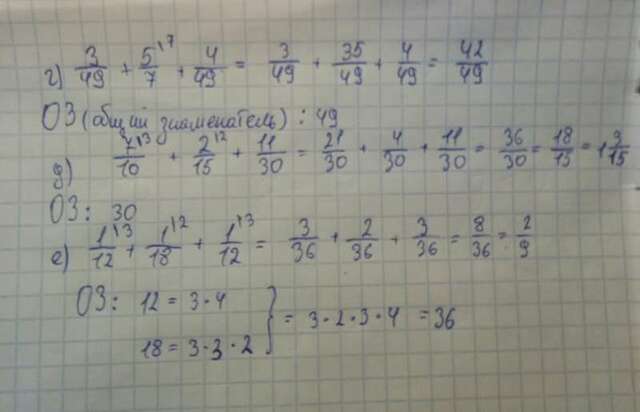 г) 3/49 + 5/7 \7 + 4/49 = 3/49 + 35/49 + 4/49 = 42/49
ОЗ (общий знаменатель) : 49
д) 7/10 \3 + 2/15 \2 + 11/30 = 21/30 + 4/30 + 11/30 = 36/30 = 18/15 = 1 3/15
ОЗ: 30
е) 1/12 \3 + 1/18 \2 + 1/12 \3 = 3/36 + 2/36 + 3/36 = 8/36 = 2/9
ОЗ: 12 = 3·4
18 = 3·3·2 } = 3·2·3·4 = 36